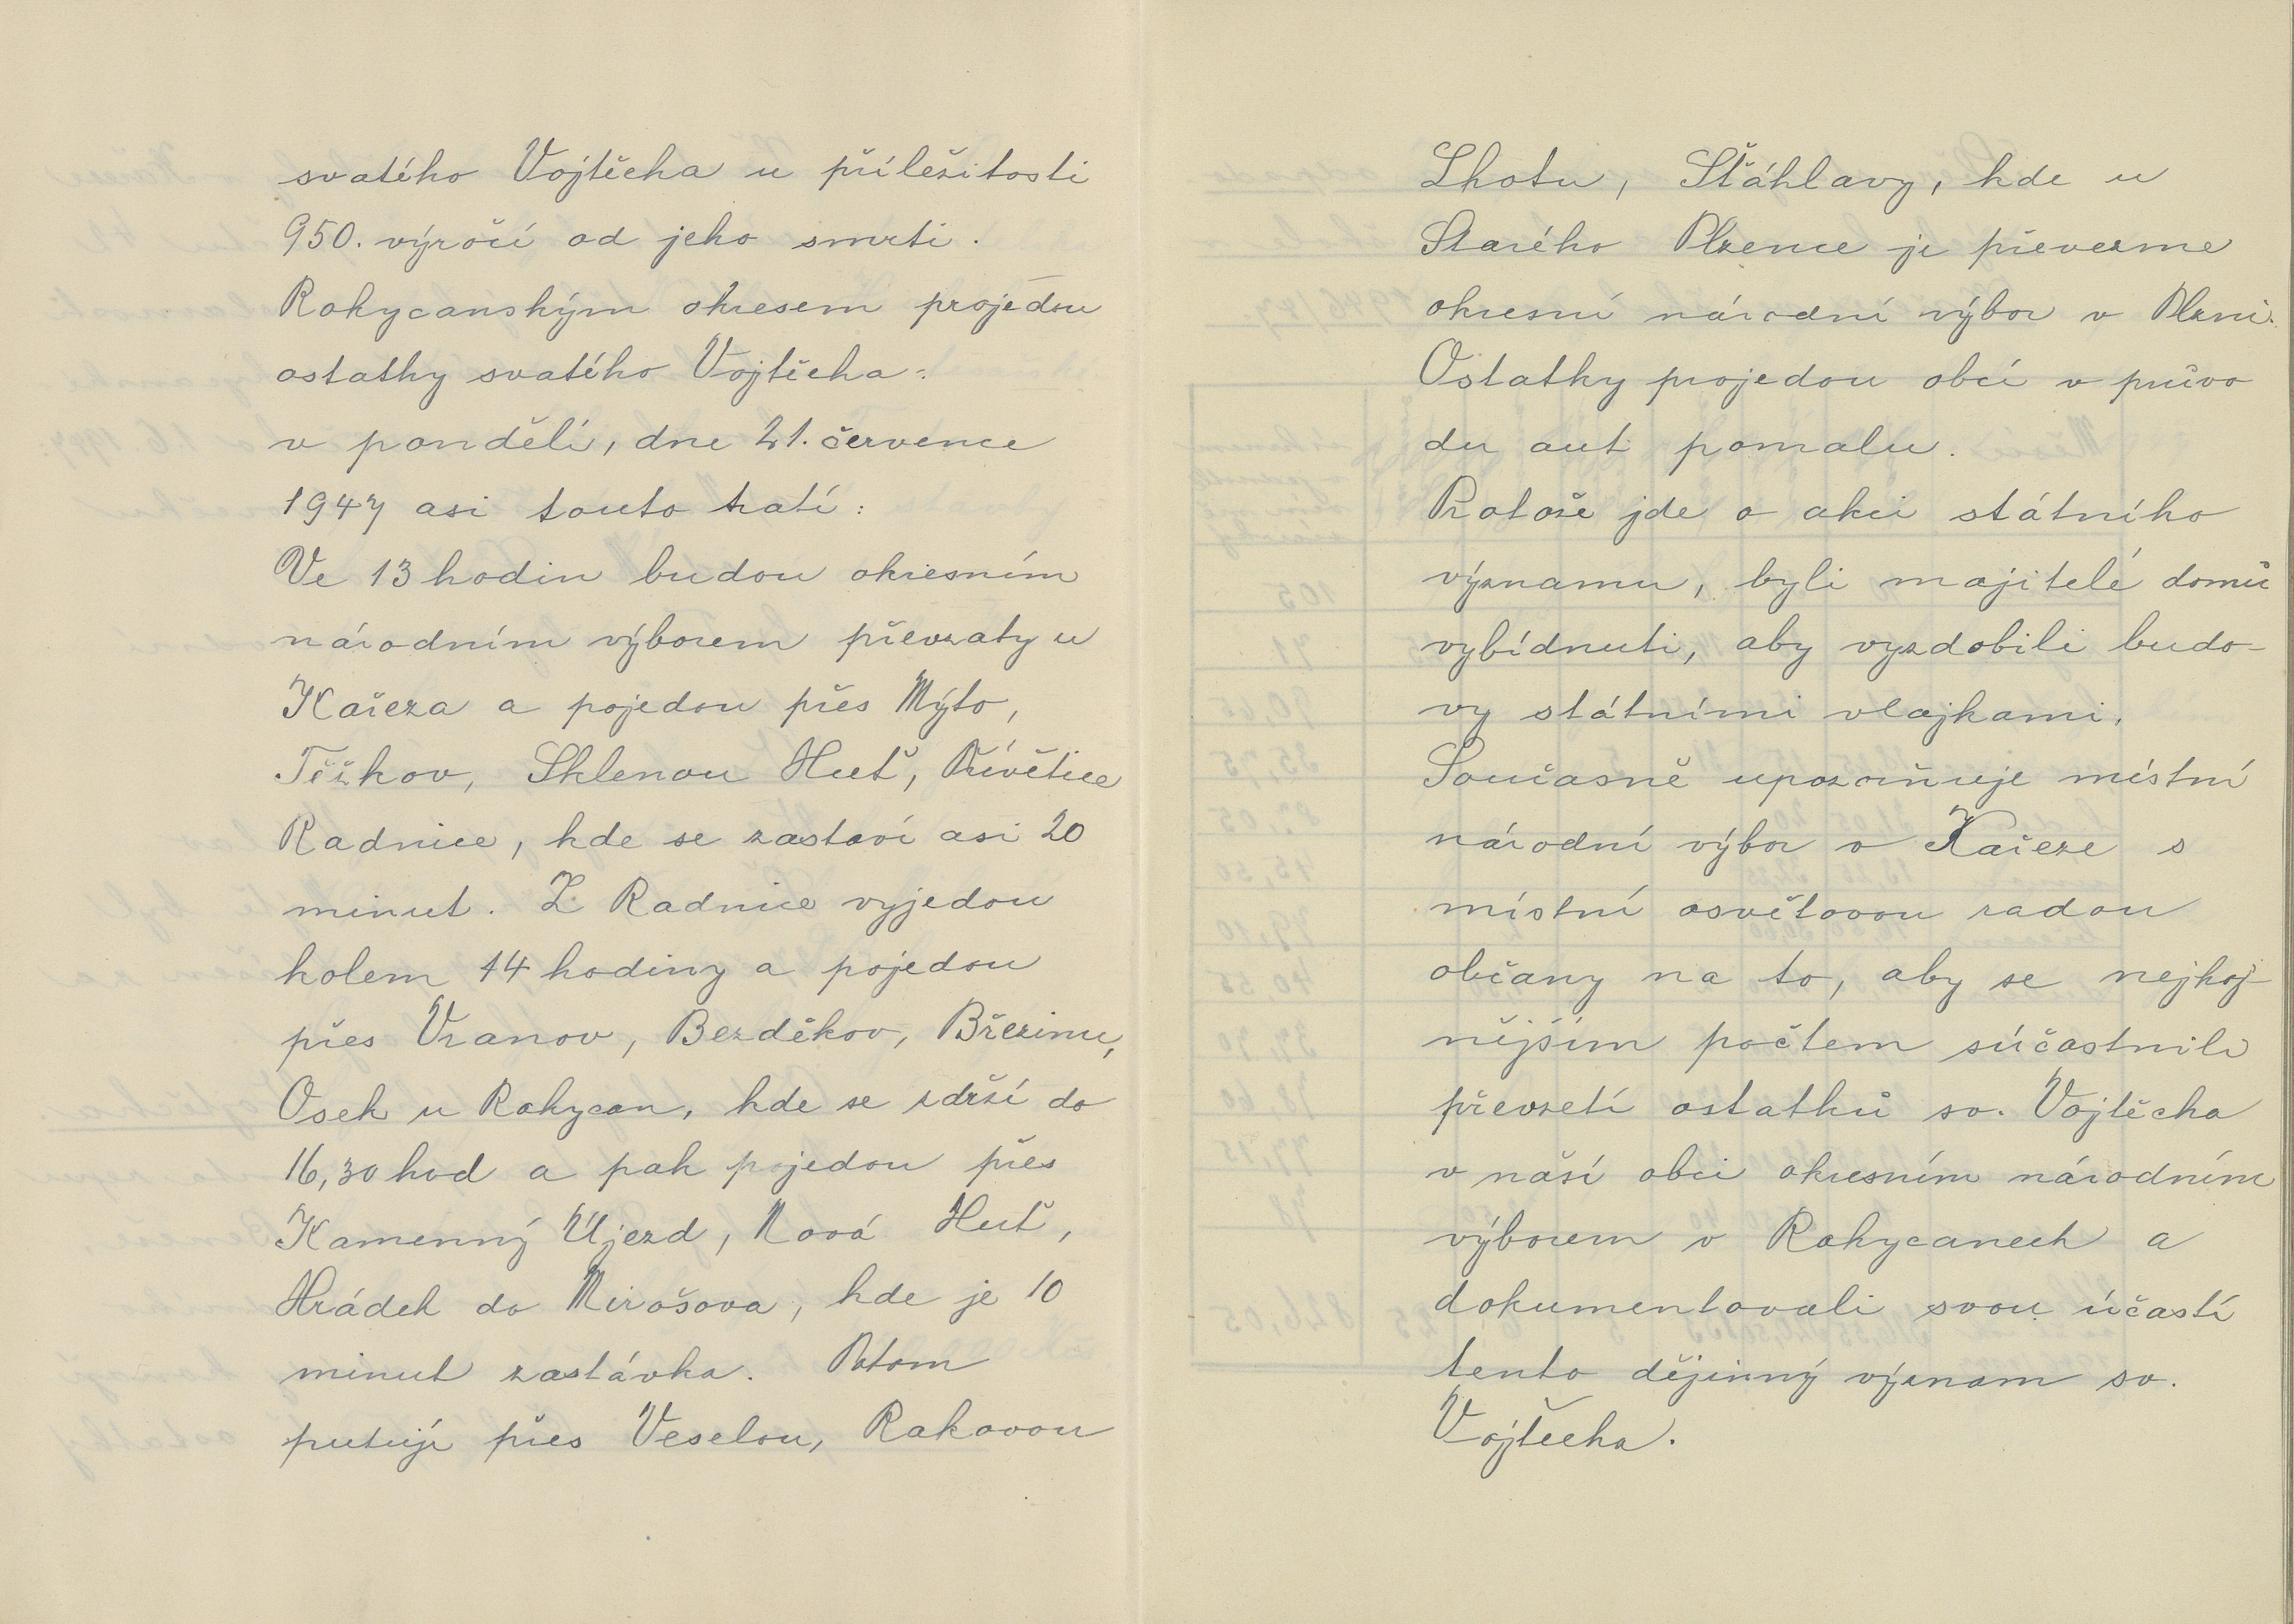 svatého Vojtěcha u příležitosti
950. výročí od jeho smrti.
Rokycanským okresem projedou
ostatky svatého Vojtěcha:
v pondělí, dne 21. července
1947 asi touto tratí:
Ve 13 hodin budou okresním
národním výborem převzaty u
Kařeza a pojedou přes Mýto,
Těškov, Sklenou Huť, Přívětice
Radnice, kde se zastaví asi 20
minut. Z Radnice vyjedou
kolem 14 hodiny a pojedou
přes Vranov, Bezděkov, Březinu,
Osek u Rokycan, kde se zdrží do
16,30 hod a pak pojedou přes
Kamenný Újezd, Nová Huť,
Hrádek do Mirošova, kde je 10
minut zastávka. Potom
putují přes Veselou, Rakovou
Lhotu, Šťáhlavy, kde u
Starého Plzence je převezme
okresní národní výbor v Plzni.
Ostatky projedou obcí v průvo
du aut pomalu.
Protože jde o akci státního
významu, byli majitelé domů
vybídnuti, aby vyzdobili budo-
vy státními vlajkami.
Současně upozorňuje místní
národní výbor v Kařeze s
místní osvětovou radou
občany na to, aby se nejhoj-
nějším počtem súčastnili
převzetí ostatků sv. Vojtěcha
v naší obci okresním národním
výborem v Rokycanech a
dokumentovali svou účastí
tento dějinný význam sv.
Vojtěcha.